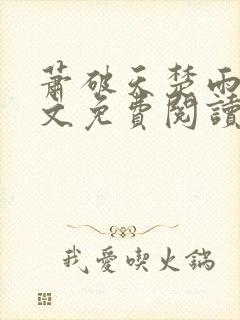 蕭破天楚雨
文免費閱讀
我愛喫火鍋